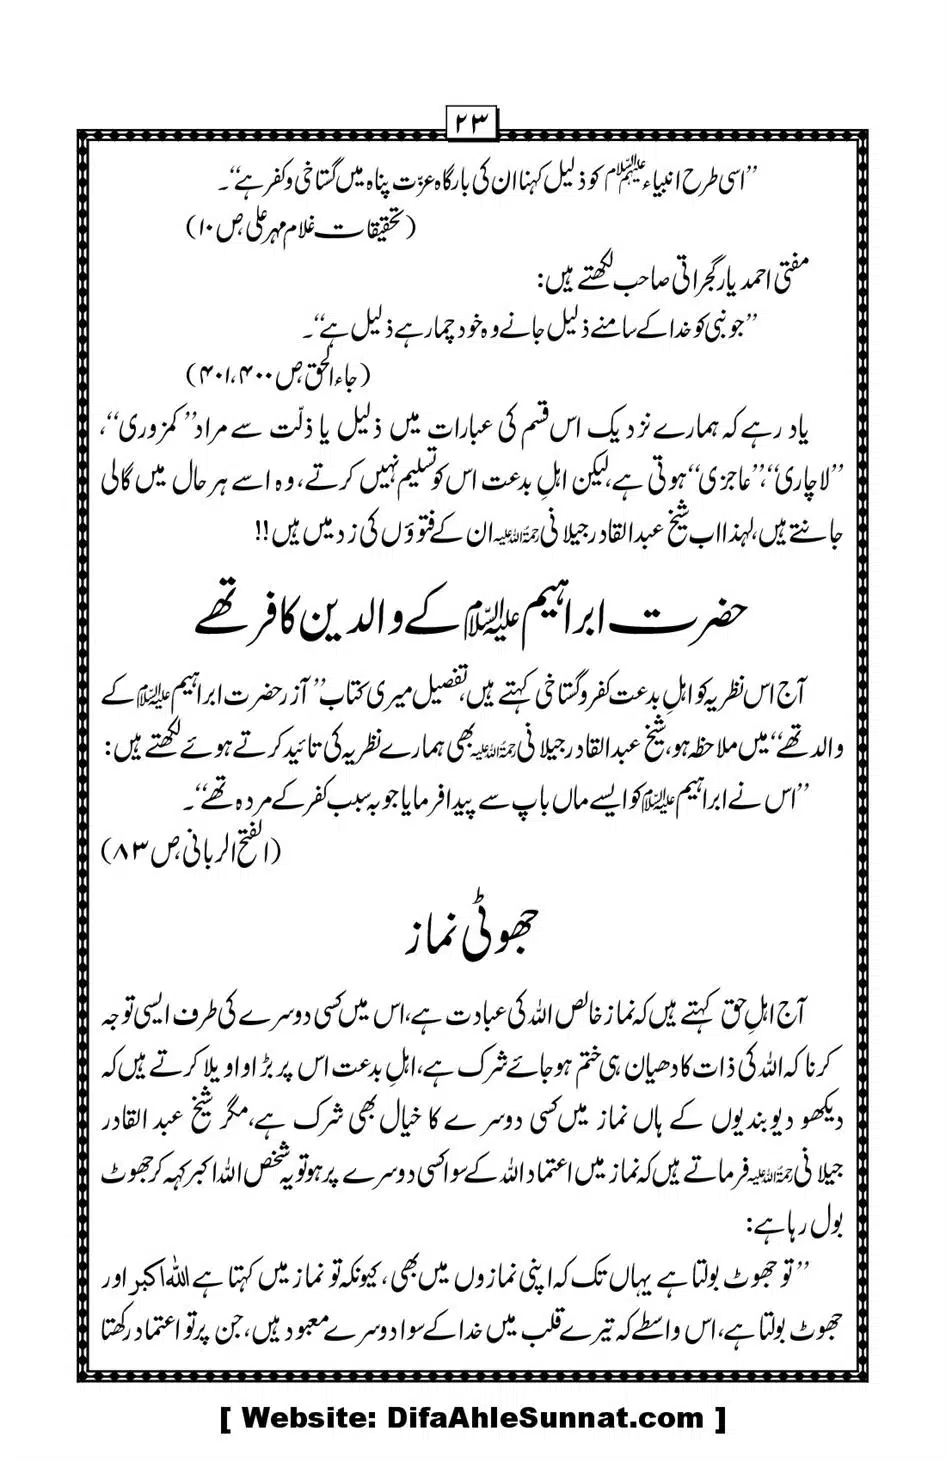 ۲۳
’’اسی طرح انبیاء علیہم السلام کو ذلیل کہنا ان کی بارگاہ عزّت پناہ میں گستاخی و کفر ہے‘‘۔
(تحقیقات غلام مہر علی ص ۱۰)
مفتی احمد یار گجراتی صاحب لکھتے ہیں:
’’جو نبی کو خدا کے سامنے ذلیل جانے وہ خود چمار ہے ذلیل ہے‘‘۔
(جاء الحق ص ۴۰۰،۴۰۱)
یاد رہے کہ ہمارے نزدیک اس قسم کی عبارات میں ذلیل یا ذلّت سے مراد ’’کمزوری‘‘،
’’لاچاری‘‘،’’عاجزی‘‘ ہوتی ہے، لیکن اہلِ بدعت اس کو تسلیم نہیں کرتے، وہ اسے ہر حال میں گالی
جانتے ہیں، لہذا اب شیخ عبدالقادر جیلانی رحمۃ اللہ علیہ ان کے فتوؤں کی زد میں ہیں!!
حضرت ابراہیم علیہ السلام کے والدین کافر تھے
آج اس نظریہ کو اہلِ بدعت کفر و گستاخی کہتے ہیں، تفصیل میری کتاب ’’آزر حضرت ابراہیم علیہ السلام کے
والد تھے‘‘ میں ملاحظہ ہو، شیخ عبدالقادر جیلانی رحمۃ اللہ علیہ بھی ہمارے نظریہ کی تائید کرتے ہوئے لکھتے ہیں:
’’اس نے ابراہیم علیہ السلام کو ایسے ماں باپ سے پیدا فرمایا جو بہ سبب کفر کے مردہ تھے‘‘۔
(الفتح الربانی ص ۸۳)
جھوٹی نماز
آج اہلِ حق کہتے ہیں کہ نماز خالص اللہ کی عبادت ہے، اس میں کسی دوسرے کی طرف ایسی توجہ
کرنا کہ اللہ کی ذات کا دھیان ہی ختم ہو جائے شرک ہے، اہلِ بدعت اس پر بڑا واویلا کرتے ہیں کہ
دیکھو دیوبندیوں کے ہاں نماز میں کسی دوسرے کا خیال بھی شرک ہے، مگر شیخ عبد القادر
جیلانی رحمۃ اللہ علیہ فرماتے ہیں کہ نماز میں اعتماد اللہ کے سوا کسی دوسرے پر ہو تو یہ شخص اللہ اکبر کہہ کر جھوٹ
بول رہا ہے:
’’تو جھوٹ بولتا ہے یہاں تک کہ اپنی نمازوں میں بھی، کیونکہ تو نماز میں کہتا ہے اللہ اکبر اور
جھوٹ بولتا ہے، اس واسطے کہ تیرے قلب میں خدا کے سوا دوسرے معبود ہیں، جن پر تو اعتماد رکھتا
[ Website: DifaAhleSunnat.com ]